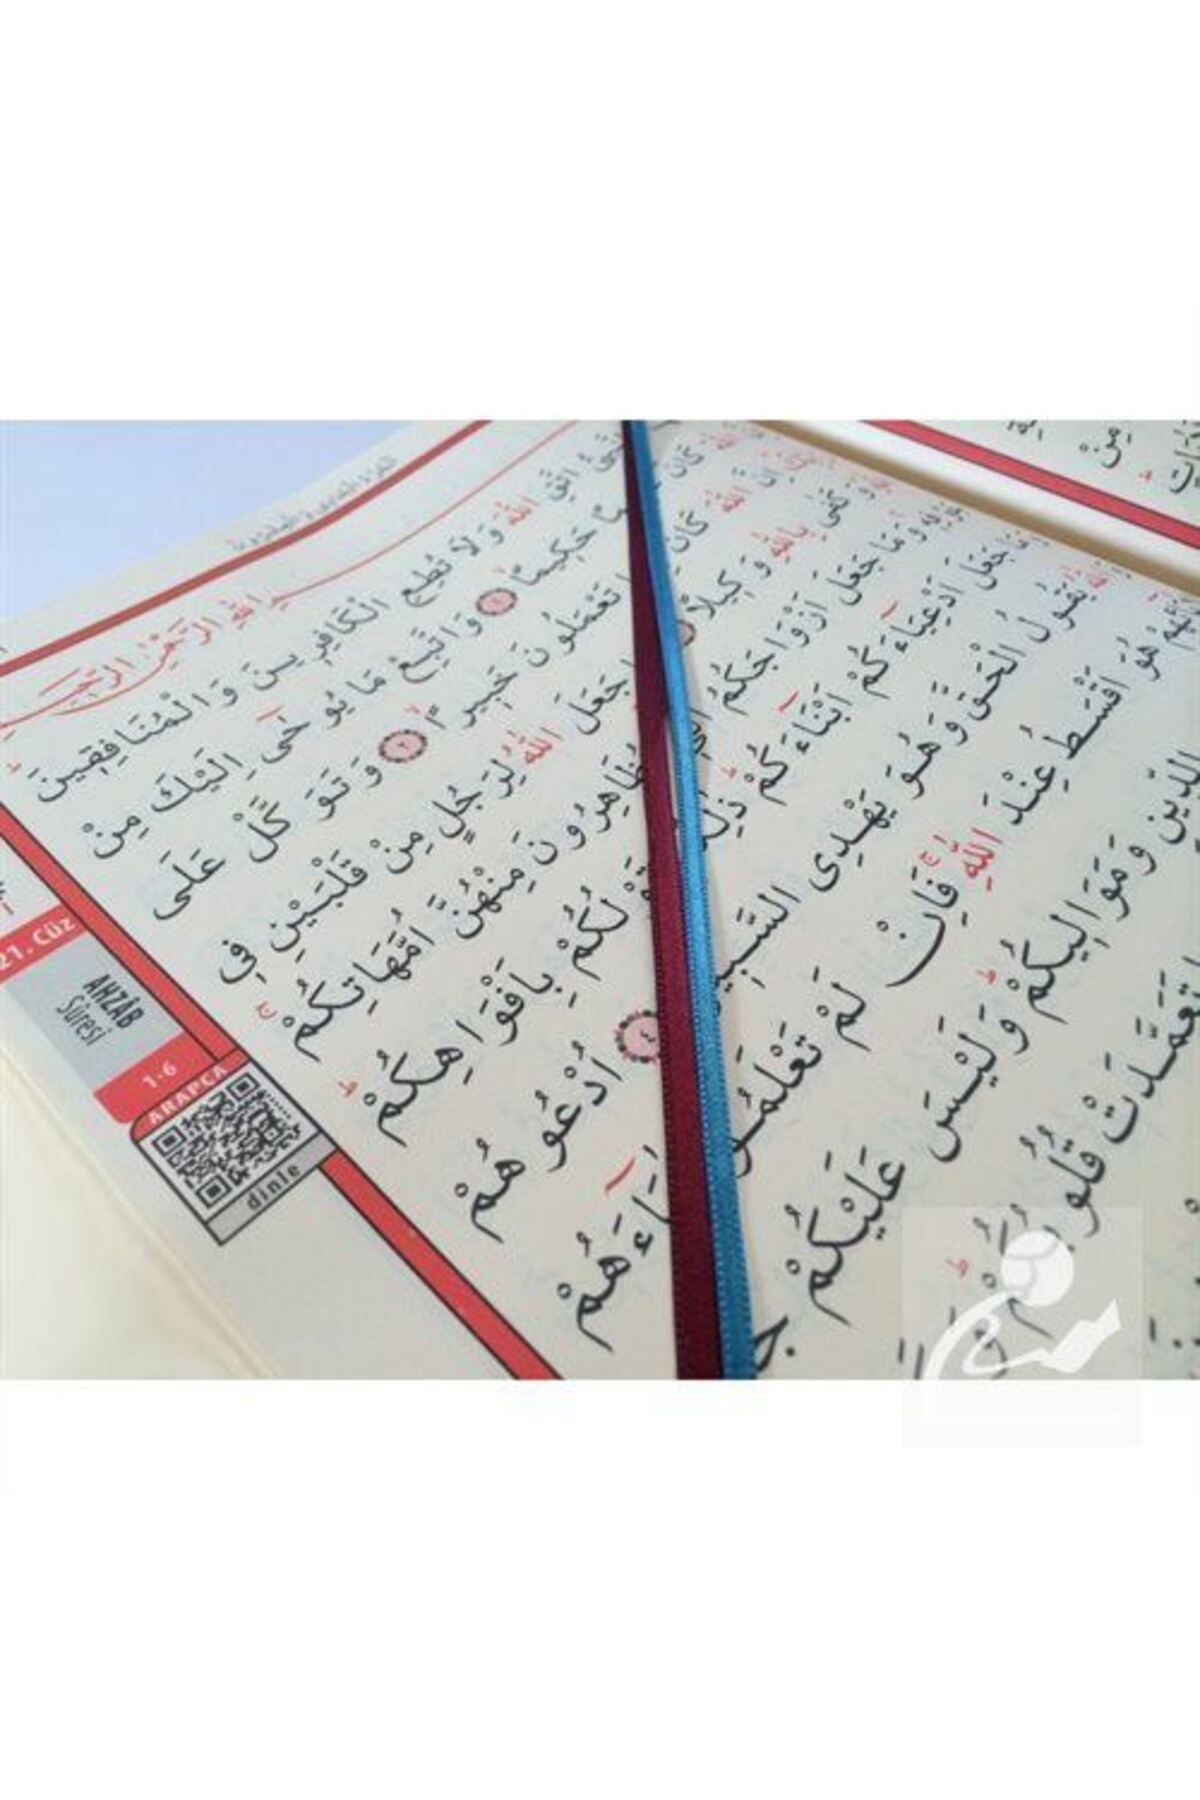 بِسْمِ اللّٰهِ الرَّحْمٰنِ الرَّحِيمِ
اتَّقِ اللّٰهَ وَلَا تُطِعِ الْكَافِرِينَ وَالْمُنَافِقِينَ
كَانَ حَكِيمًا ١ وَاتَّبِعْ مَا يُوحٰى اِلَيْكَ مِنْ
اِنَّ اللّٰهَ كَانَ تَعْمَلُونَ خَبِيرًا ٢ وَتَوَكَّلْ عَلَى
وَكَفٰى بِاللّٰهِ وَكِيلًا جَعَلَ اللّٰهُ لِرَجُلٍ مِنْ قَلْبَيْنِ فِى
وَمَا جَعَلَ اَزْوَاجَكُمُ تُظَاهِرُونَ مِنْهُنَّ اُمَّهَاتِكُمْ
جَعَلَ اَدْعِيَاءَكُمْ اَبْنَاءَكُمْ ذٰلِكُمْ قَوْلُكُمْ بِاَفْوَاهِكُمْ
يَقُولُ الْحَقَّ وَهُوَ يَهْدِى السَّبِيلَ ٤ اُدْعُوهُمْ
هُوَ اَقْسَطُ عِنْدَ اللّٰهِ فَاِنْ لَمْ تَعْلَمُوا اٰبَاءَهُمْ
الدِّينِ وَمَوَالِيكُمْ وَلَيْسَ عَلَيْكُمْ
تَعَمَّدَتْ قُلُوبُكُمْ
21. Cüz
AHZÂB
Sûresi
1-6
ARAPÇA
dinle